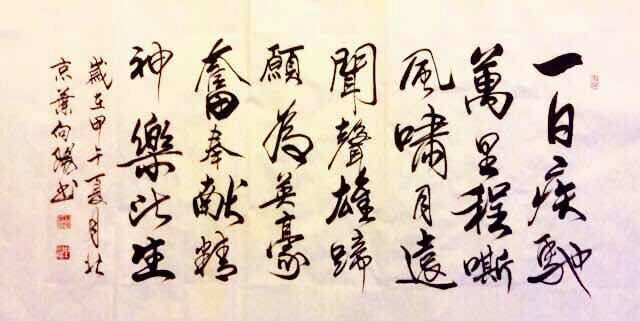 一日疾馳
萬里程嘶
風嘯月遠
聞聲雄蹄
願為英豪
奮奉獻精
神樂此生
歲在甲午夏月北
京葉向陽書